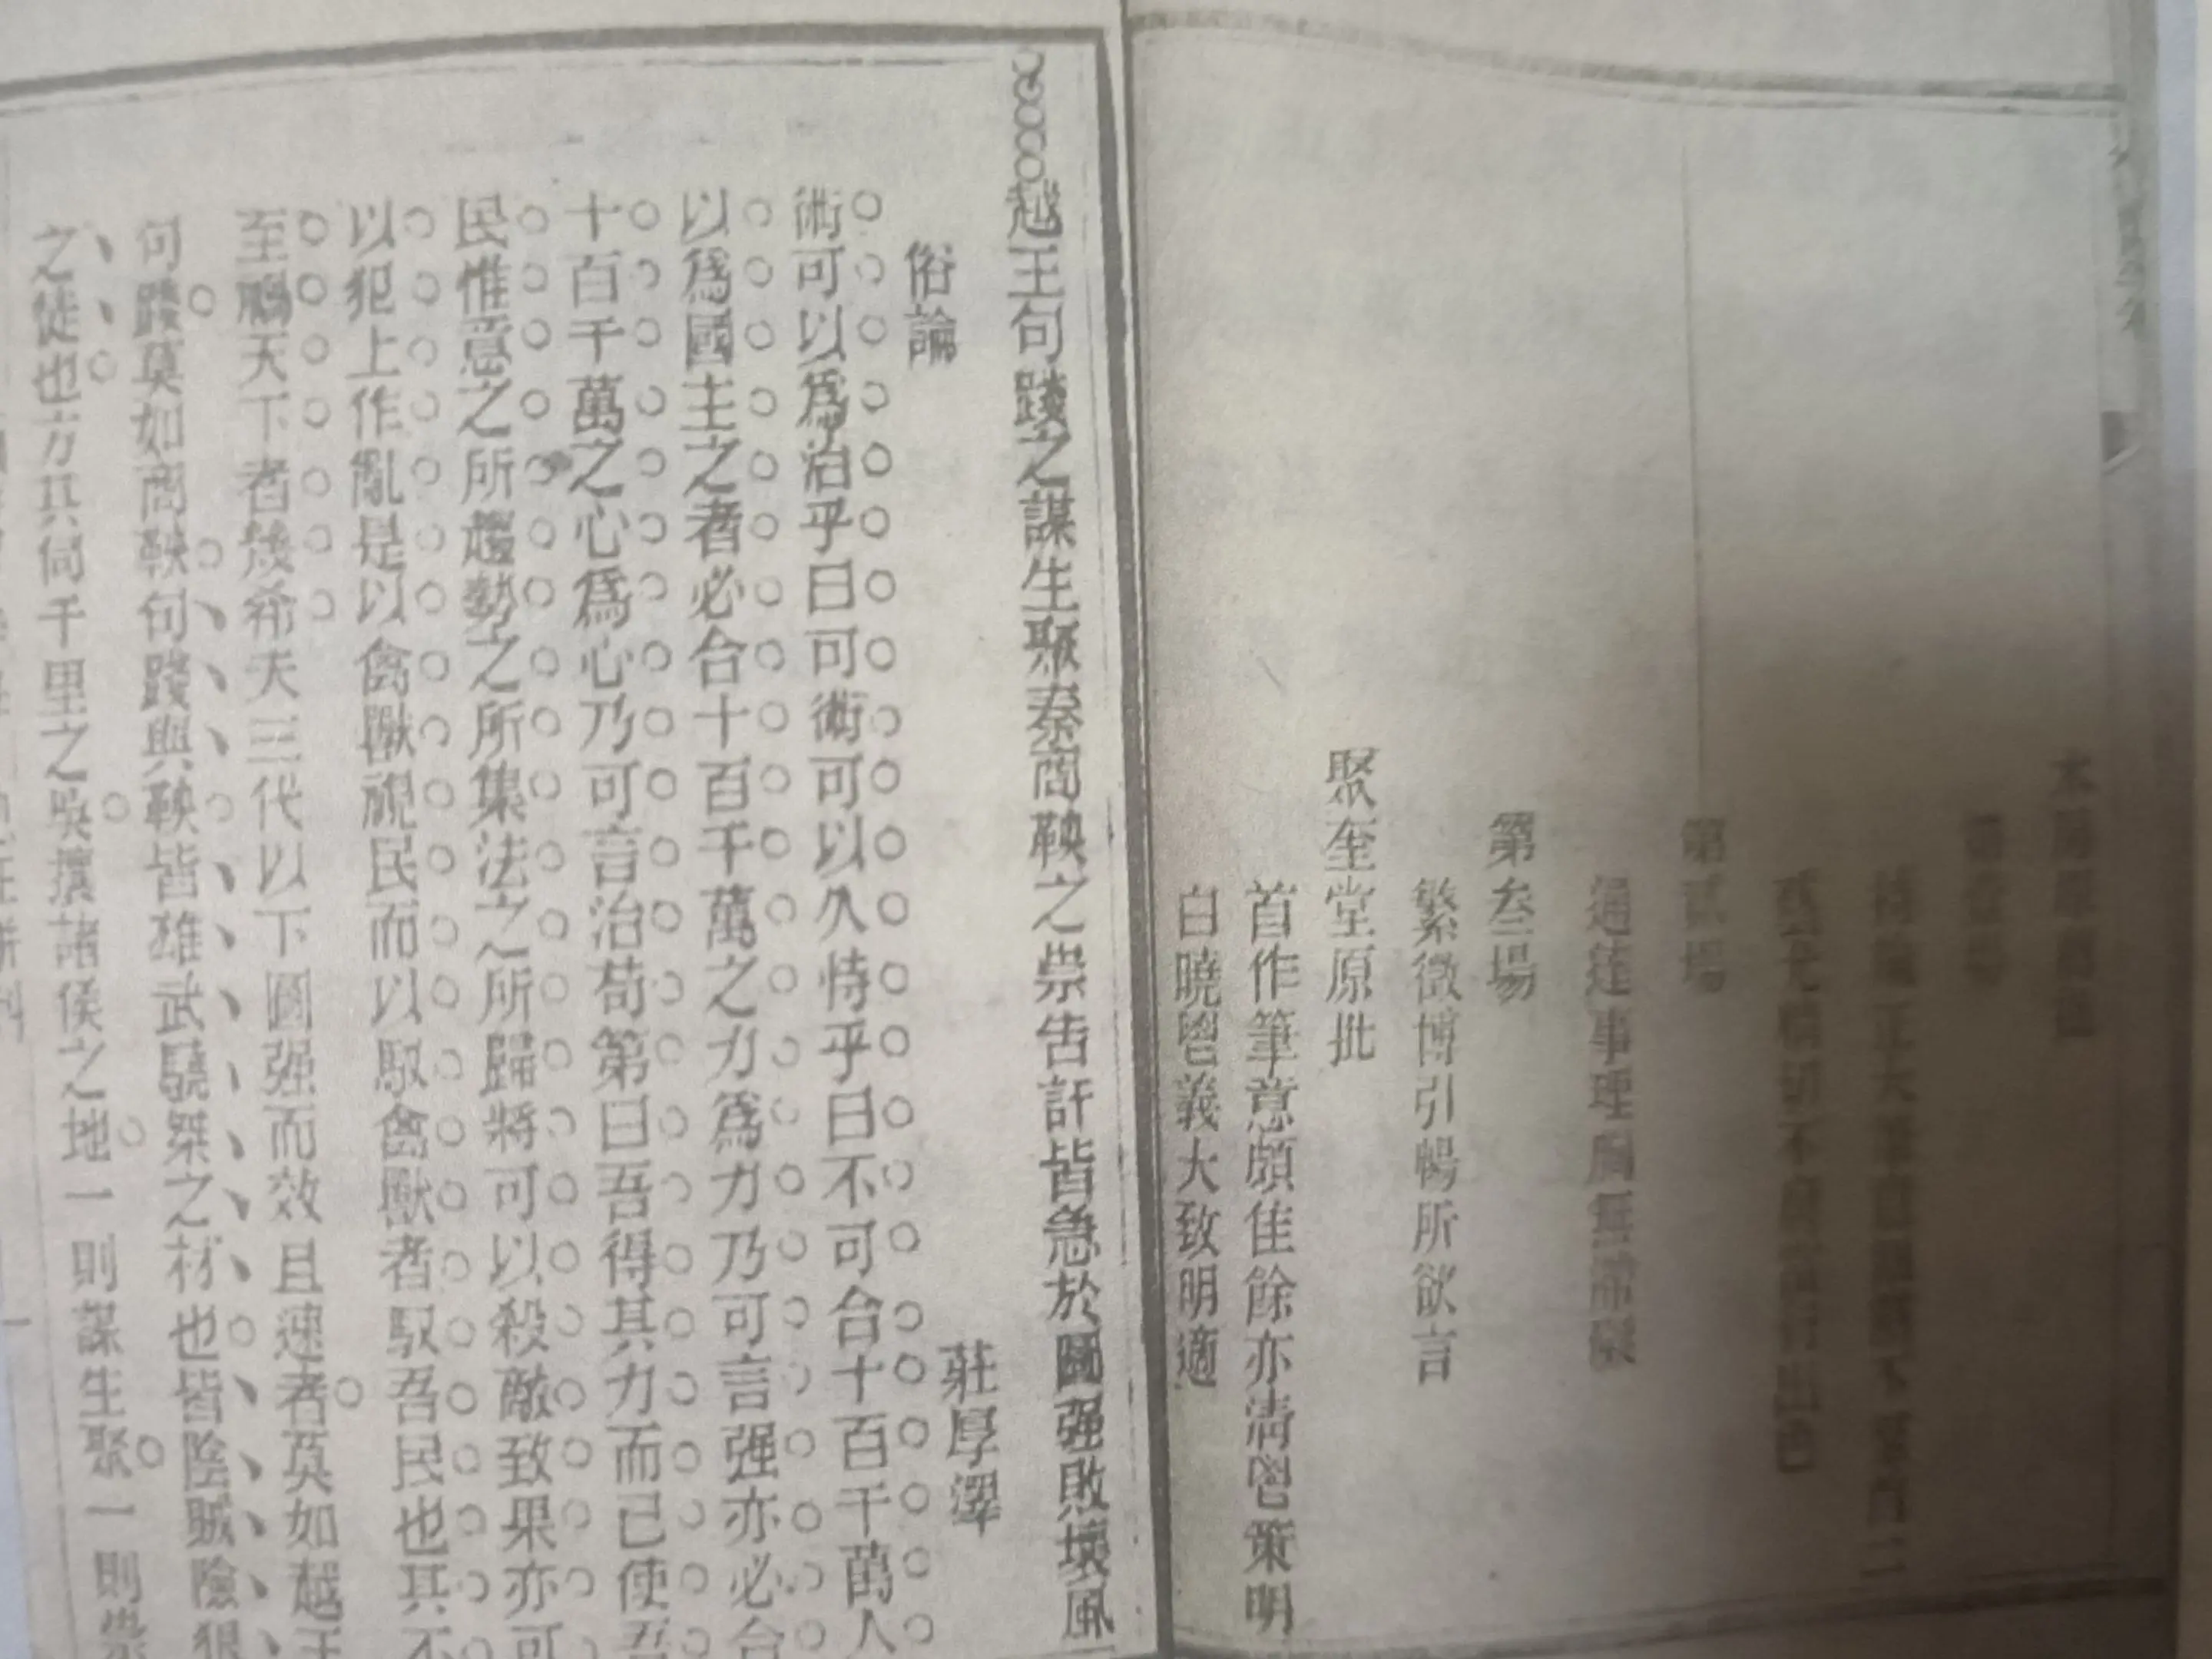 本房原薦批
第壹場
第貳場
通達事理胸無滯礙
第叁場
繁徵博引暢所欲言
聚奎堂原批
首作筆意頗佳餘亦淸晳策明
白曉鬯義大致明適
越王句踐之謀生聚秦商鞅之祟告訐皆急於圖强敗壞風
俗論
莊厚澤
術可以爲治乎曰可術可以久恃乎曰不可合十百千萬人
以爲國主之者必合十百千萬之力爲力乃可言强亦必合
十百千萬之心爲心乃可言治苟第曰吾得其力而已使吾
民惟意之所趨勢之所集法之所歸將可以殺敵致果亦可
以犯上作亂是以禽獸視民而以馭禽獸者馭吾民也其不
至禍天下者幾希夫三代以下圖强而效且速者莫如越王
句踐莫如商鞅句踐與鞅皆雄武驍桀之材也皆陰賊險狠
之徒也方其伺千里之吳攘諸侯之地一則謀生聚一則祟